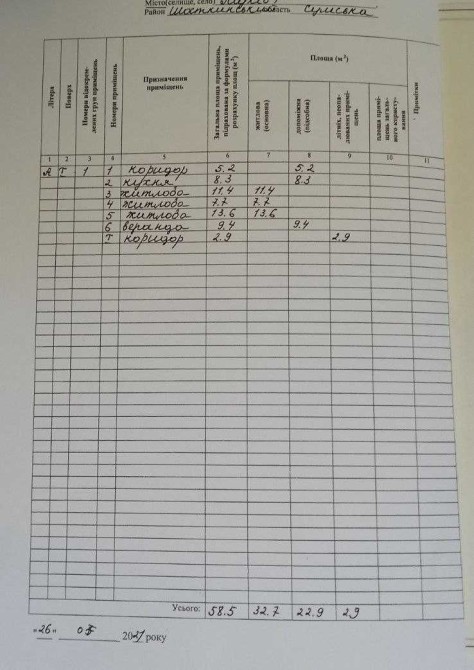 Місто(селище, село)
Район Шосткинський область Сумська
Літера
Поверх
Номери відокремлених груп приміщень
Номери приміщень
Призначення приміщень
Загальна площа приміщень, підрахована за формулами розрахунку площ (м²)
Площа (м²)
житлова (основна)
допоміжна (підсобна)
літніх, неопалюваних приміщень
площа приміщень загального користування
Примітки
1 2 3 4 5 6 7 8 9 10 11
А Т 1 1 коридор 5.2 5.2
2 кухня 8.3 8.3
3 житлова 11.4 11.4
4 житлова 7.7 7.7
5 житлова 13.6 13.6
6 веранда 9.4 9.4
Т коридор 2.9 2.9
Усього: 58.5 32.7 22.9 2.9
"26" 2021 року